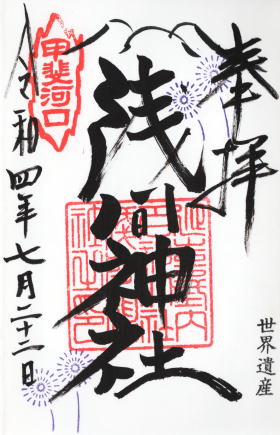 奉拝
世界遺産
浅間神社
甲斐河口
令和四年七月二十二日